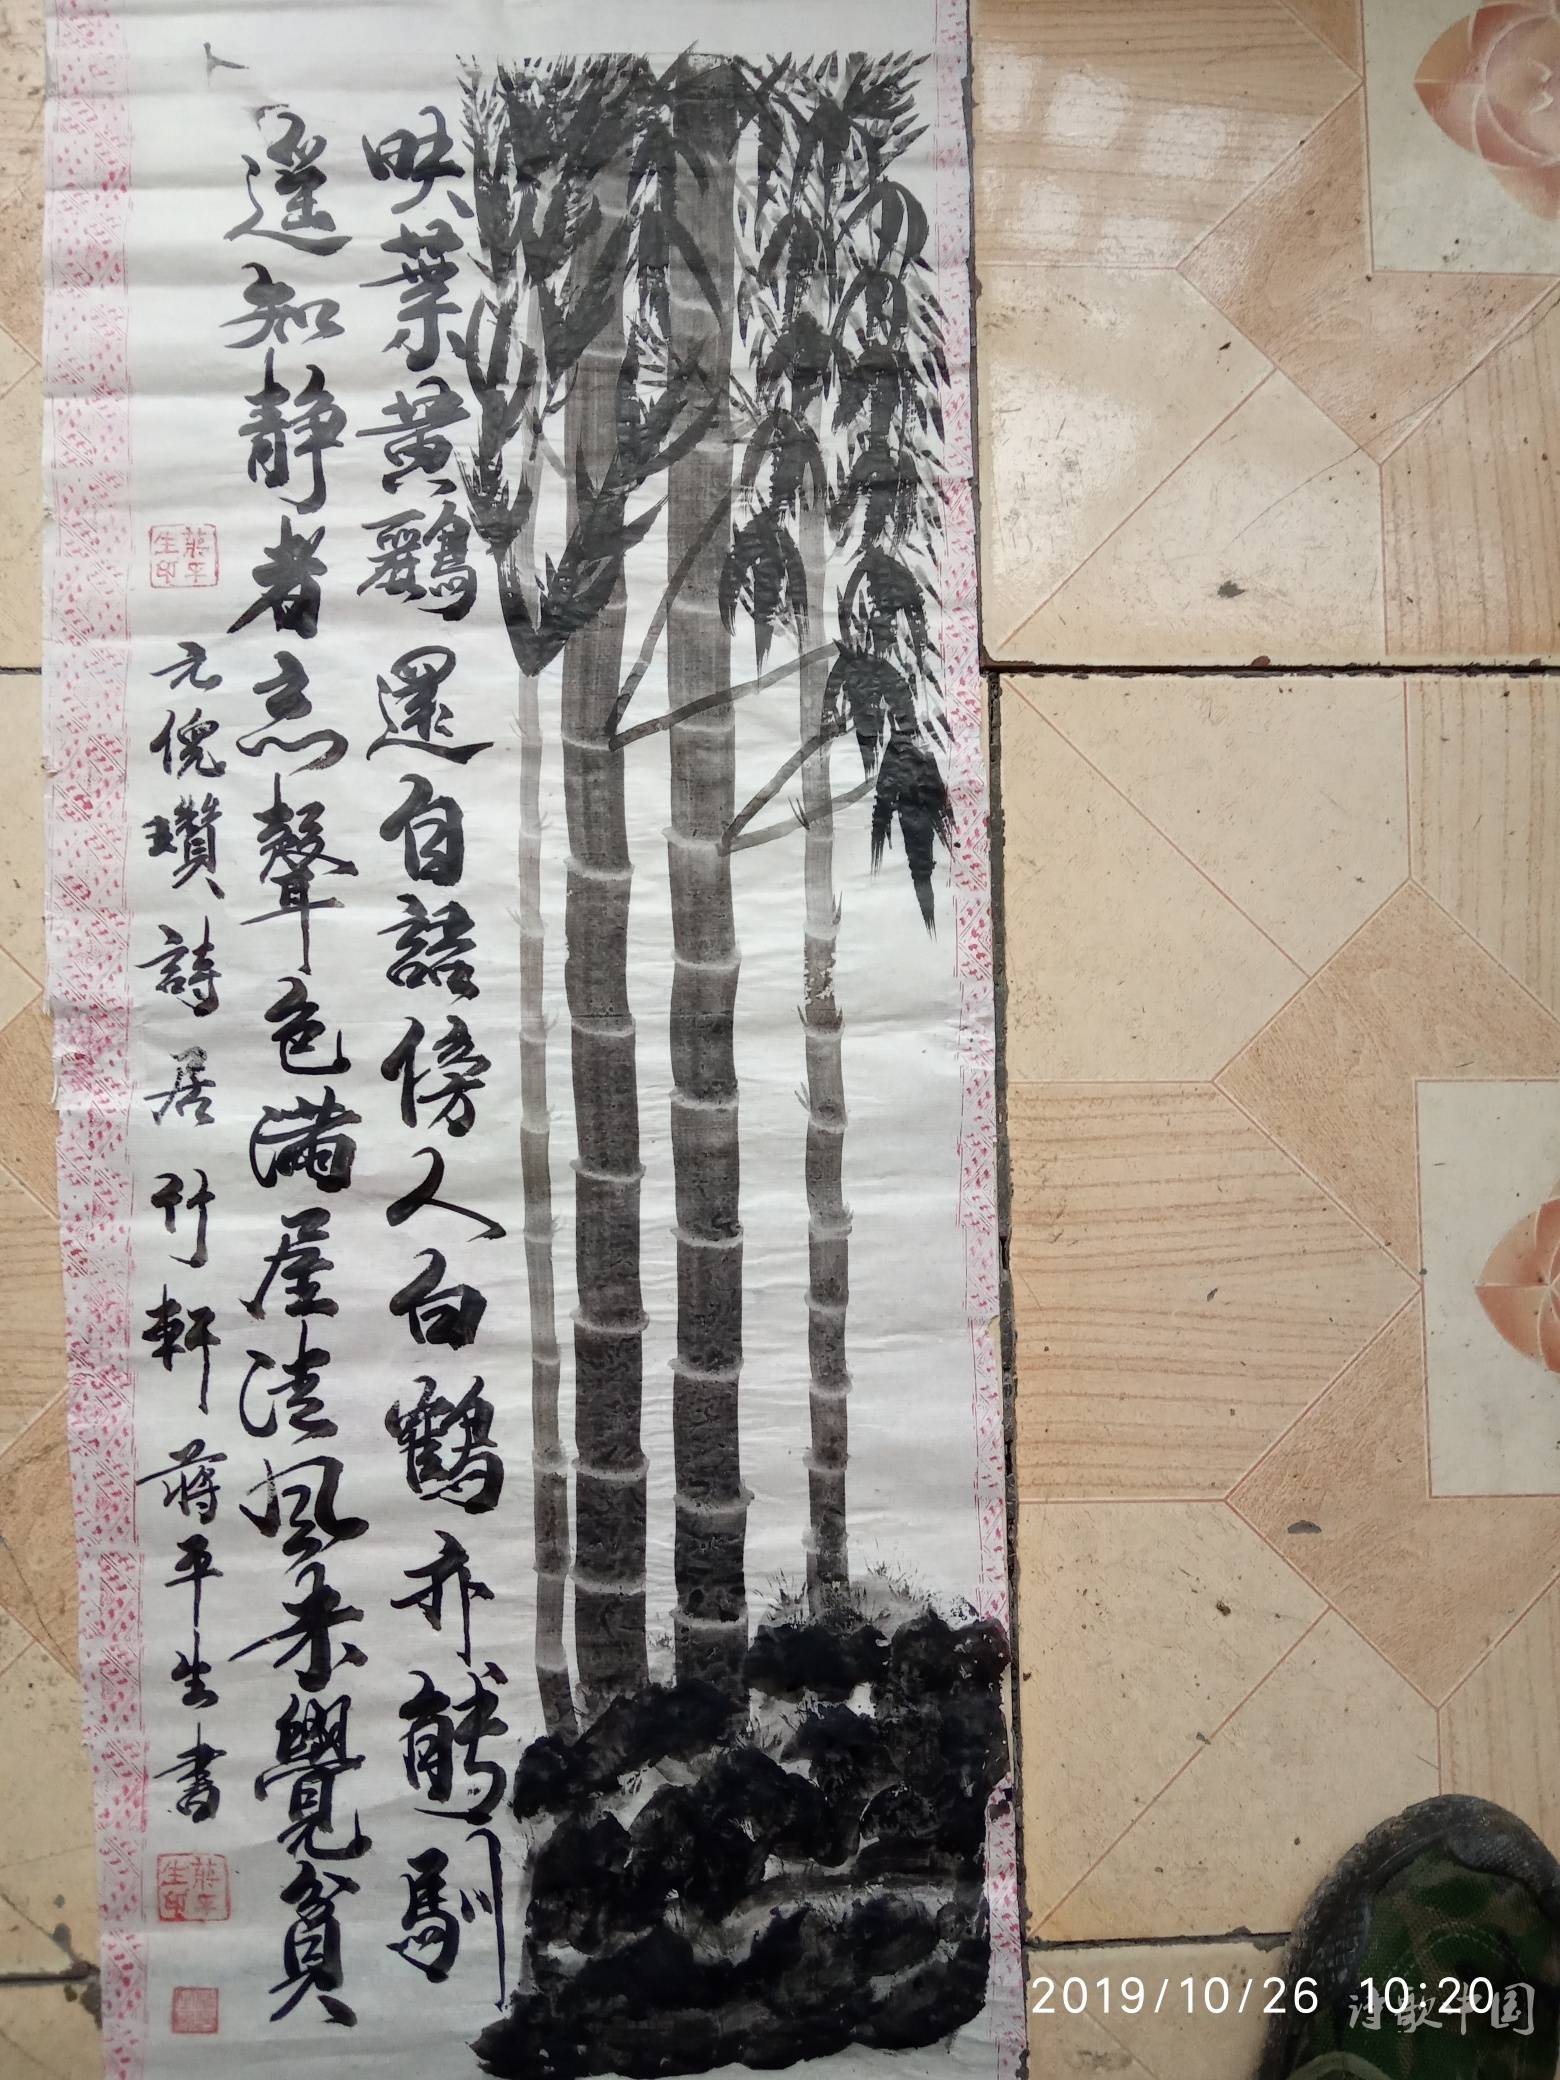 映葉黃鸝還自語傍人白鶴亦能馴
遥知静者忘聲色满屋清風未覺貧
元倪瓚詩居竹軒蔣平生書
蔣平生印
蔣平生印
2019/10/26 10:20
诗歌中国